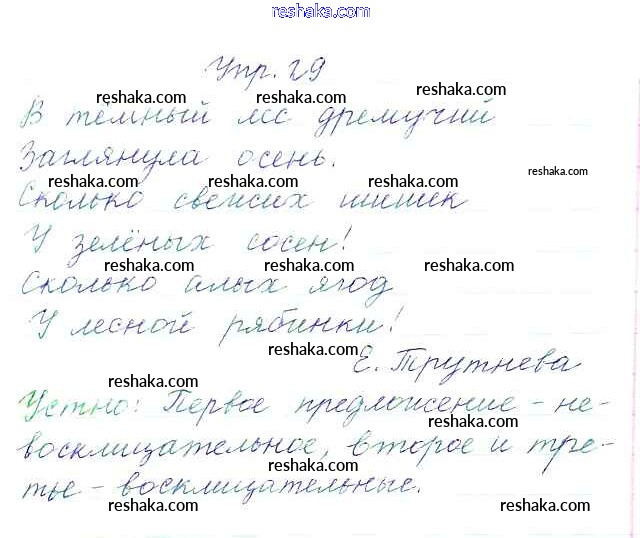 reshaka.com
Упр. 29
reshaka.com reshaka.com reshaka.com
В темный лес дремучий
Заглянула осень.
reshaka.com reshaka.com reshaka.com reshaka.com
Сколько свежих шишек
У зелёных сосен!
reshaka.com reshaka.com reshaka.com
Сколько алых ягод
У лесной рябинки!
reshaka.com
Е. Трутнева
reshaka.com
Устно: Первое предложение - не-
reshaka.com
восклицательное, второе и тре-
reshaka.com
тье - восклицательные.
reshaka.com reshaka.com reshaka.com